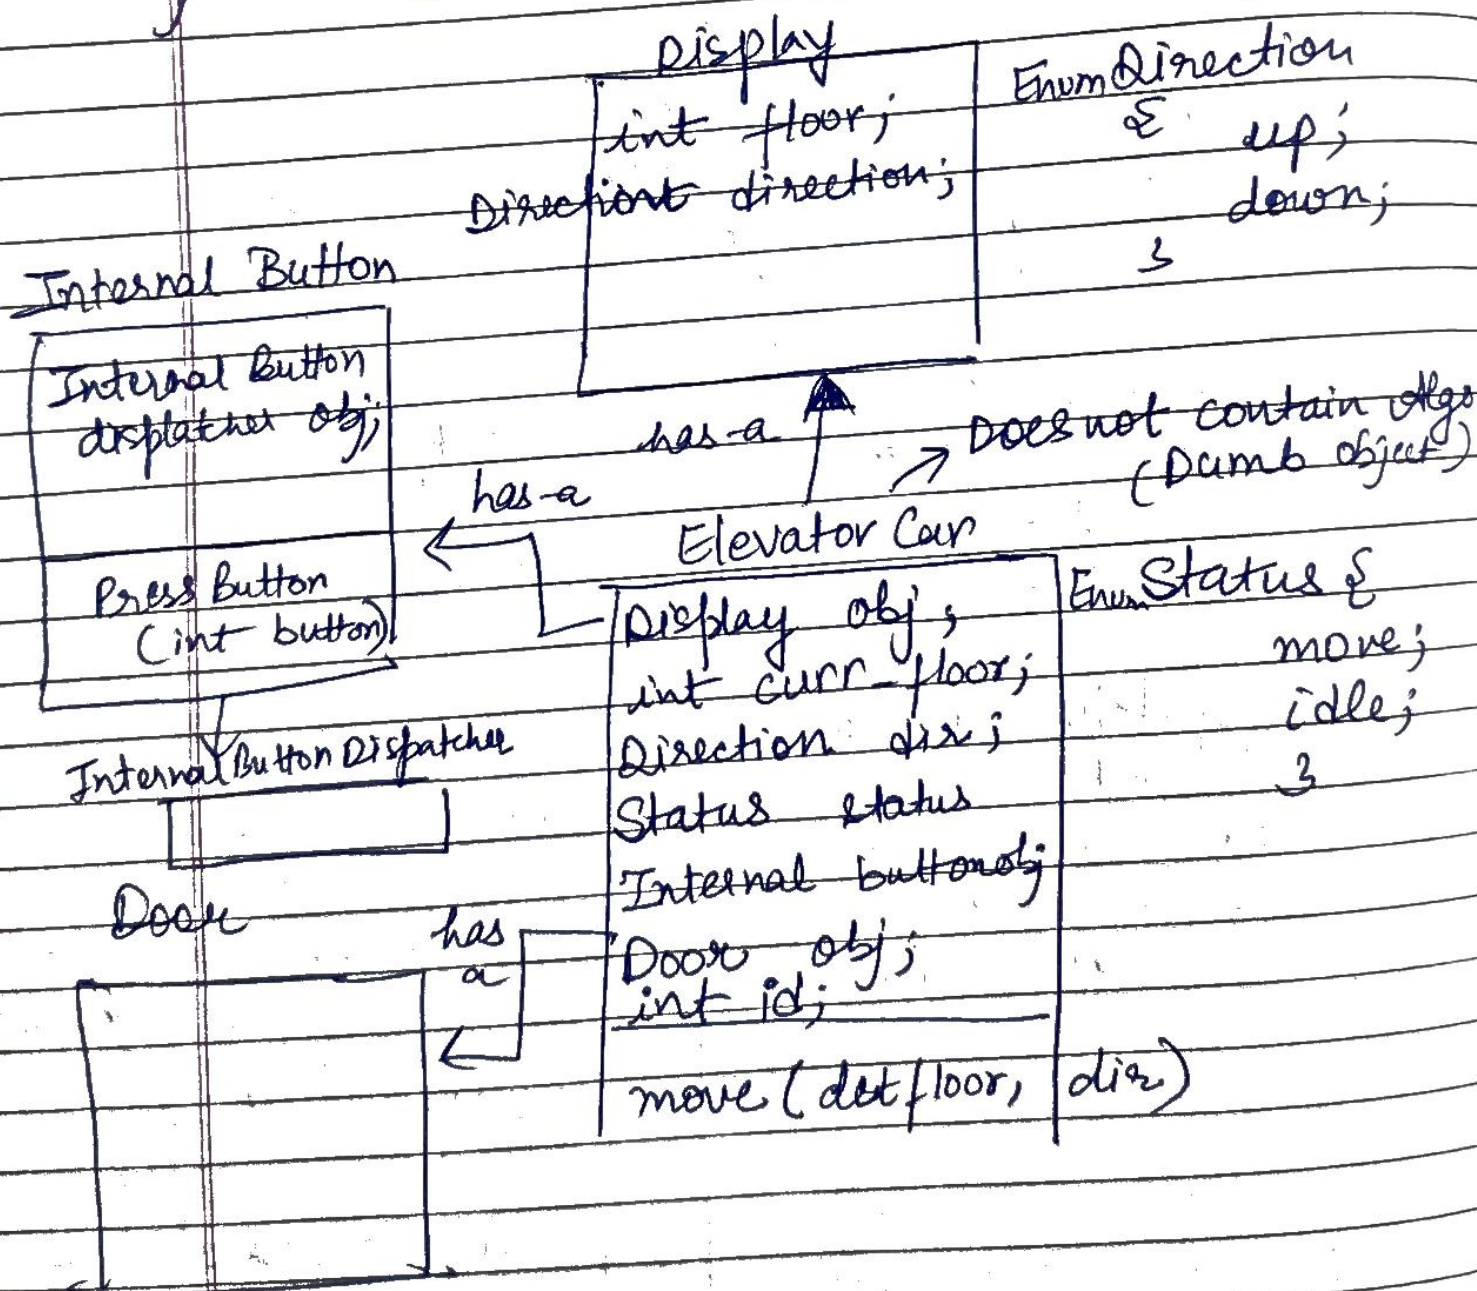 Display
int floor;
Direction direction;
Enum Direction
{
up;
down;
}
Internal Button
Internal Button
displatcher obj;
Press Button
(int button)
has-a
has-a
Does not contain Algo
(Dumb object)
Elevator Car
Display obj;
int curr_floor;
Direction dir;
Status status
Internal buttonobj
Door obj;
int id;
move (dstfloor, dir)
Enum Status {
move;
idle;
}
Internal Button Dispatcher
Door
has
a